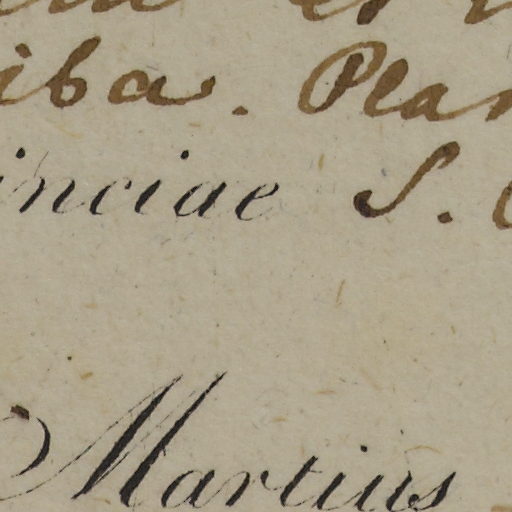 iba. Plan
inciae S.
Martius